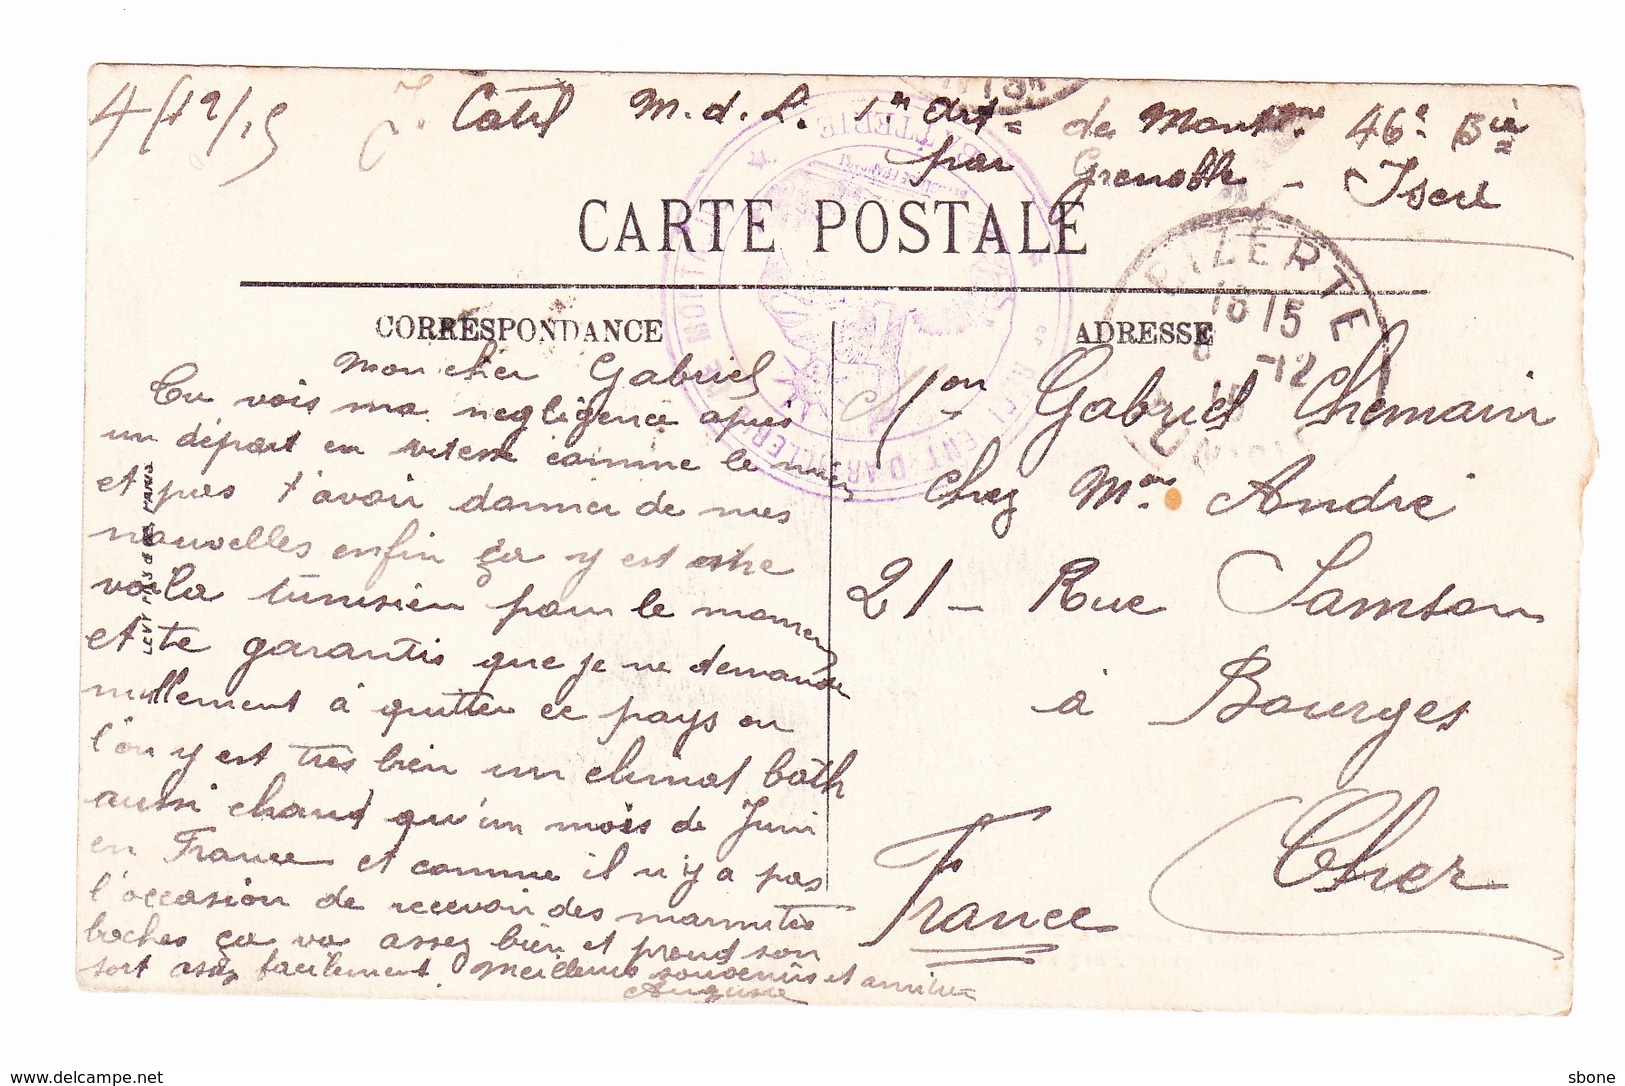 4/12/15 J. Catel M.d.L. 1er Art= de Montgne 46e Bie
par Grenoble - Isere
CARTE POSTALE
BIZERTE
18 15
8 -12
15
CORRESPONDANCE
ADRESSE
mon cher Gabriel
Tu vois ma negligence après
un départ en vitesse comme le mien
et pas t'avoir donner de mes
nouvelles enfin ça y est
voila tunisien pour le moment
et te garantis que je ne demande
nullement à quitter ce pays ou
l'on y est très bien un climat bath
aussi chaud qu'un mois de Juin
en France et comme il n'y a pas
l'occasion de recevoir des marmites
boches ça va assez bien et prend son
sort assez facilement. Meilleurs souvenirs et amitiés
Auguste
Mon Gabriel Chemain
chez Mme André
21 - Rue Samson
à Bourges
Cher
France
LEVY FILS & Cie PARIS
delcampe.net
sbone